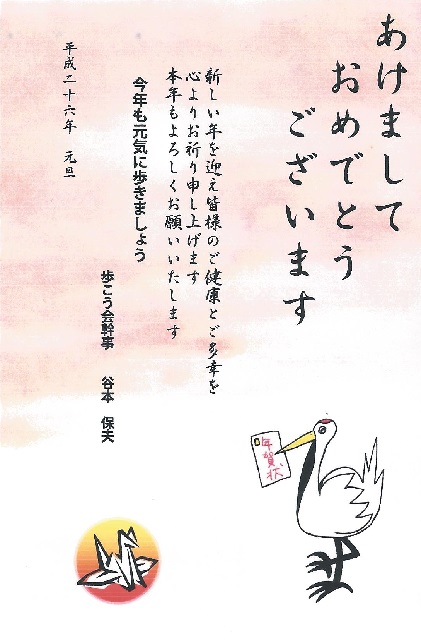 あけまして
おめでとう
ございます
新しい年を迎え皆様のご健康とご多幸を
心よりお祈り申し上げます
本年もよろしくお願いいたします
今年も元気に歩きましょう
歩こう会幹事　谷本　保夫
平成二十六年　元旦
年賀状